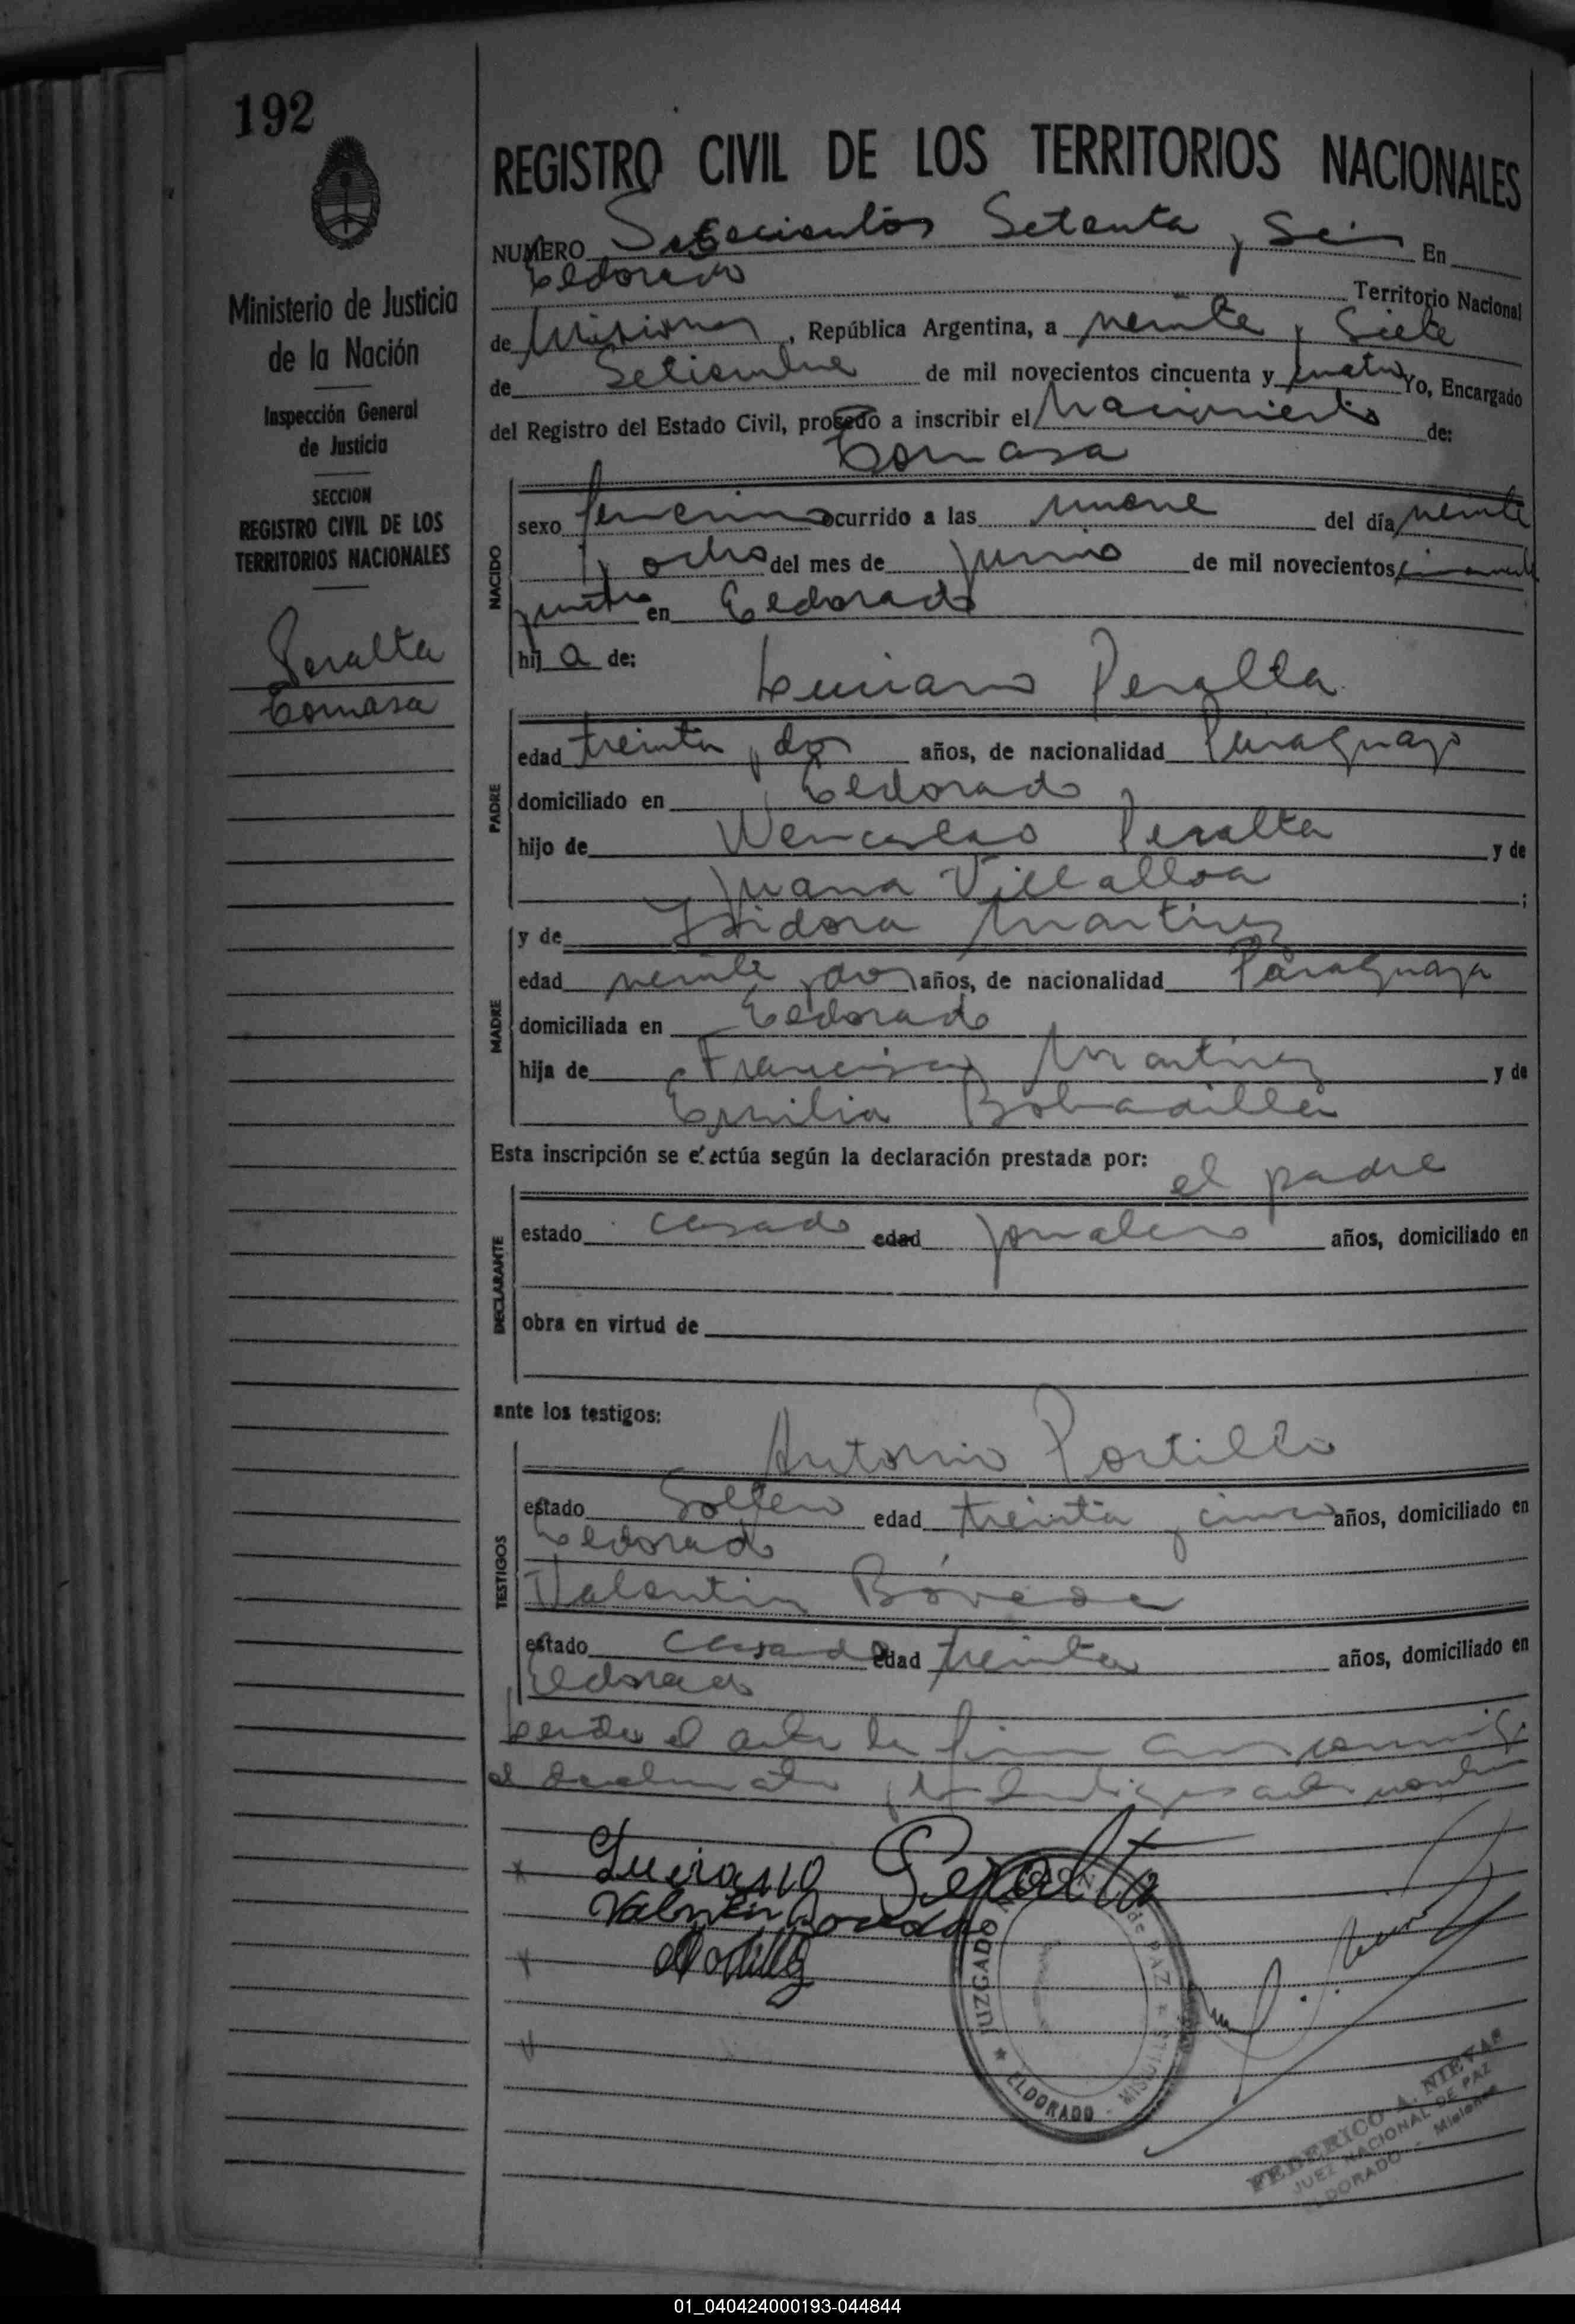 192
Ministerio de Justicia
de la Nación
Inspección General
de Justicia
SECCION
REGISTRO CIVIL DE LOS
TERRITORIOS NACIONALES
Peralta
Tomasa
REGISTRO CIVIL DE LOS TERRITORIOS NACIONALES
NUMERO Setecientos Setenta y Seis En
Eldorado Territorio Nacional
de Misiones, República Argentina, a veinte y Siete
de Setiembre de mil novecientos cincuenta y cuatro Yo, Encargado
del Registro del Estado Civil, procedo a inscribir el Nacimiento de:
Tomasa
NACIDO
sexo femenino ocurrido a las nueve del día veinte
y ocho del mes de Junio de mil novecientos cincuenta
cuatro en Eldorado
hij a de:
Luciano Peralta
PADRE
edad treinta y dos años, de nacionalidad Paraguayo
domiciliado en Eldorado
hijo de Wenceslao Peralta y de
Juana Villalba ;
y de Isidora Martinez
MADRE
edad veinte y dos años, de nacionalidad Paraguaya
domiciliada en Eldorado
hija de Francisco Martinez y de
Emilia Bobadilla
Esta inscripción se efectúa según la declaración prestada por:
el padre
DECLARANTE
estado casado edad jornalero años, domiciliado en
obra en virtud de
ante los testigos:
Antonio Portillo
TESTIGOS
estado Soltero edad treinta y cinco años, domiciliado en
Eldorado
Valentin Bóveda
estado casado edad treinta años, domiciliado en
Eldorado
el acta la firma conmigo
el declarante y los testigos
Luciano Peralta
Valentin Boveda
APortillo
JUZGADO de PAZ
ELDORADO - MISIONES
FEDERICO A. NIEVAS
JUEZ NACIONAL DE PAZ
ELDORADO - Misiones
01_040424000193-044844